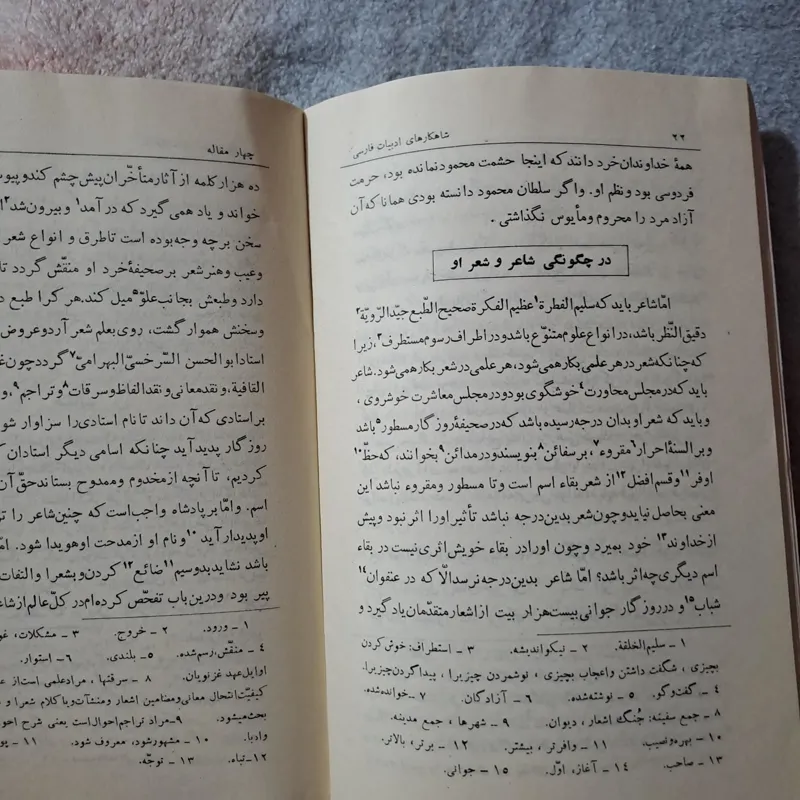 ۲۲
شاهکارهای ادبیات فارسی
همهٔ خداوندان خرد دانند که اینجا حشمت محمود نمانده بود، حرمت
فردوسی بود و نظم او. و اگر سلطان محمود دانسته بودی همانا که آن
آزاد مرد را محروم و مأیوس نگذاشتی.
در چگونگی شاعر و شعر او
امّا شاعر باید که سلیم الفطرة۱ عظیم الفکرة صحیح الطّبع جیّد الرّویّة۲
دقیق النّظر باشد، در انواع علوم متنوّع باشد و در اطراف رسوم مستطرف۳، زیرا
که چنانکه شعر در هر علمی بکار همی شود، هر علمی در شعر بکار همی شود. شاعر
باید که در مجلس محاورت۴ خوشگوی بود و در مجلس معاشرت خوشروی،
و باید که شعر او بدان درجه رسیده باشد که در صحیفهٔ روزگار مسطور۵ باشد
و بر السنهٔ احرار۶ مقروء۷، بر سفائن۸ بنویسند و در مدائن۹ بخوانند، که حظّ۱۰
اوفر۱۱ و قسم افضل۱۲ از شعر بقاء اسم است و تا مسطور و مقروء نباشد این
معنی بحاصل نیاید و چون شعر بدین درجه نباشد تأثیر او را اثر نبود و پیش
از خداوند۱۳ خود بمیرد و چون او را در بقاء خویش اثری نیست در بقاء
اسم دیگری چه اثر باشد؟ امّا شاعر بدین درجه نرسد الّا که در عنفوان۱۴
شباب۱۵ و در روزگار جوانی بیست هزار بیت از اشعار متقدّمان یاد گیرد و
۱ – سلیم الخلقة. ۲ – نیکو اندیشه. ۳ – استطراف: خوش کردن
بچیزی، شگفت داشتن و اعجاب بچیزی، نو شمردن چیز را، پیدا کردن چیز را.
۴ – گفت و گو. ۵ – نوشته شده. ۶ – آزادگان. ۷ – خوانده شده.
۸ – جمع سفینه: جُنگ اشعار، دیوان. ۹ – شهرها، جمع مدینه.
۱۰ – بهره و نصیب. ۱۱ – وافرتر، بیشتر. ۱۲ – برتر، بالاتر.
۱۳ – صاحب. ۱۴ – آغاز، اوّل. ۱۵ – جوانی.
چهار مقاله
ده هزار کلمه از آثار متأخّران پیش چشم کند و پیو
خواند و یاد همی گیرد که در آمد۱ و بیرون شد۲
سخن بر چه وجه بوده است تا طرق و انواع شعر
و عیب و هنر شعر بر صحیفهٔ خرد او منقّش گردد تا
دارد و طبعش بجانب علوّ۵ میل کند. هر کرا طبع د
و سخنش هموار گشت، روی بعلم شعر آرد و عروض
استاد ابوالحسن السّرخسیّ البهرامیّ۷ گردد چون غ
القافیة، و نقد معانی و نقد الفاظ و سرقات۸ و تراجم۹، و
بر استادی که آن داند تا نام استادی را سزاوار شو
روزگار پدید آید چنانکه اسامی دیگر استادان ک
کردیم، تا آنچه از مخدوم و ممدوح بستاند حقّ آن
اسم. و امّا بر پادشاه واجب است که چنین شاعر را تر
او پدیدار آید۱۰ و نام او از مدحت او هویدا شود. امّ
باشد نشاید بدو سیم۱۱ ضائع۱۲ کردن و بشعرا و التفات
پیر بود و درین باب تفحّص کرده ام در کلّ عالم از شا
۱ – ورود. ۲ – خروج. ۳ – مشکلات، غو
۴ – منقّش، رسم شده. ۵ – بلندی. ۶ – استوار.
اوایل عهد غزنویان. ۸ – سرقتها، مراد علمی است از ع
کیفیّت انتحال معانی و مضامین اشعار و منشآت و یا کلام شعرا و
بحث میشود. ۹ – مراد تراجم احوال است یعنی شرح احو
و ادبا. ۱۰ – مشهور شود، معروف شود. ۱۱ – پو
۱۲ – تباه. ۱۳ – توجّه.